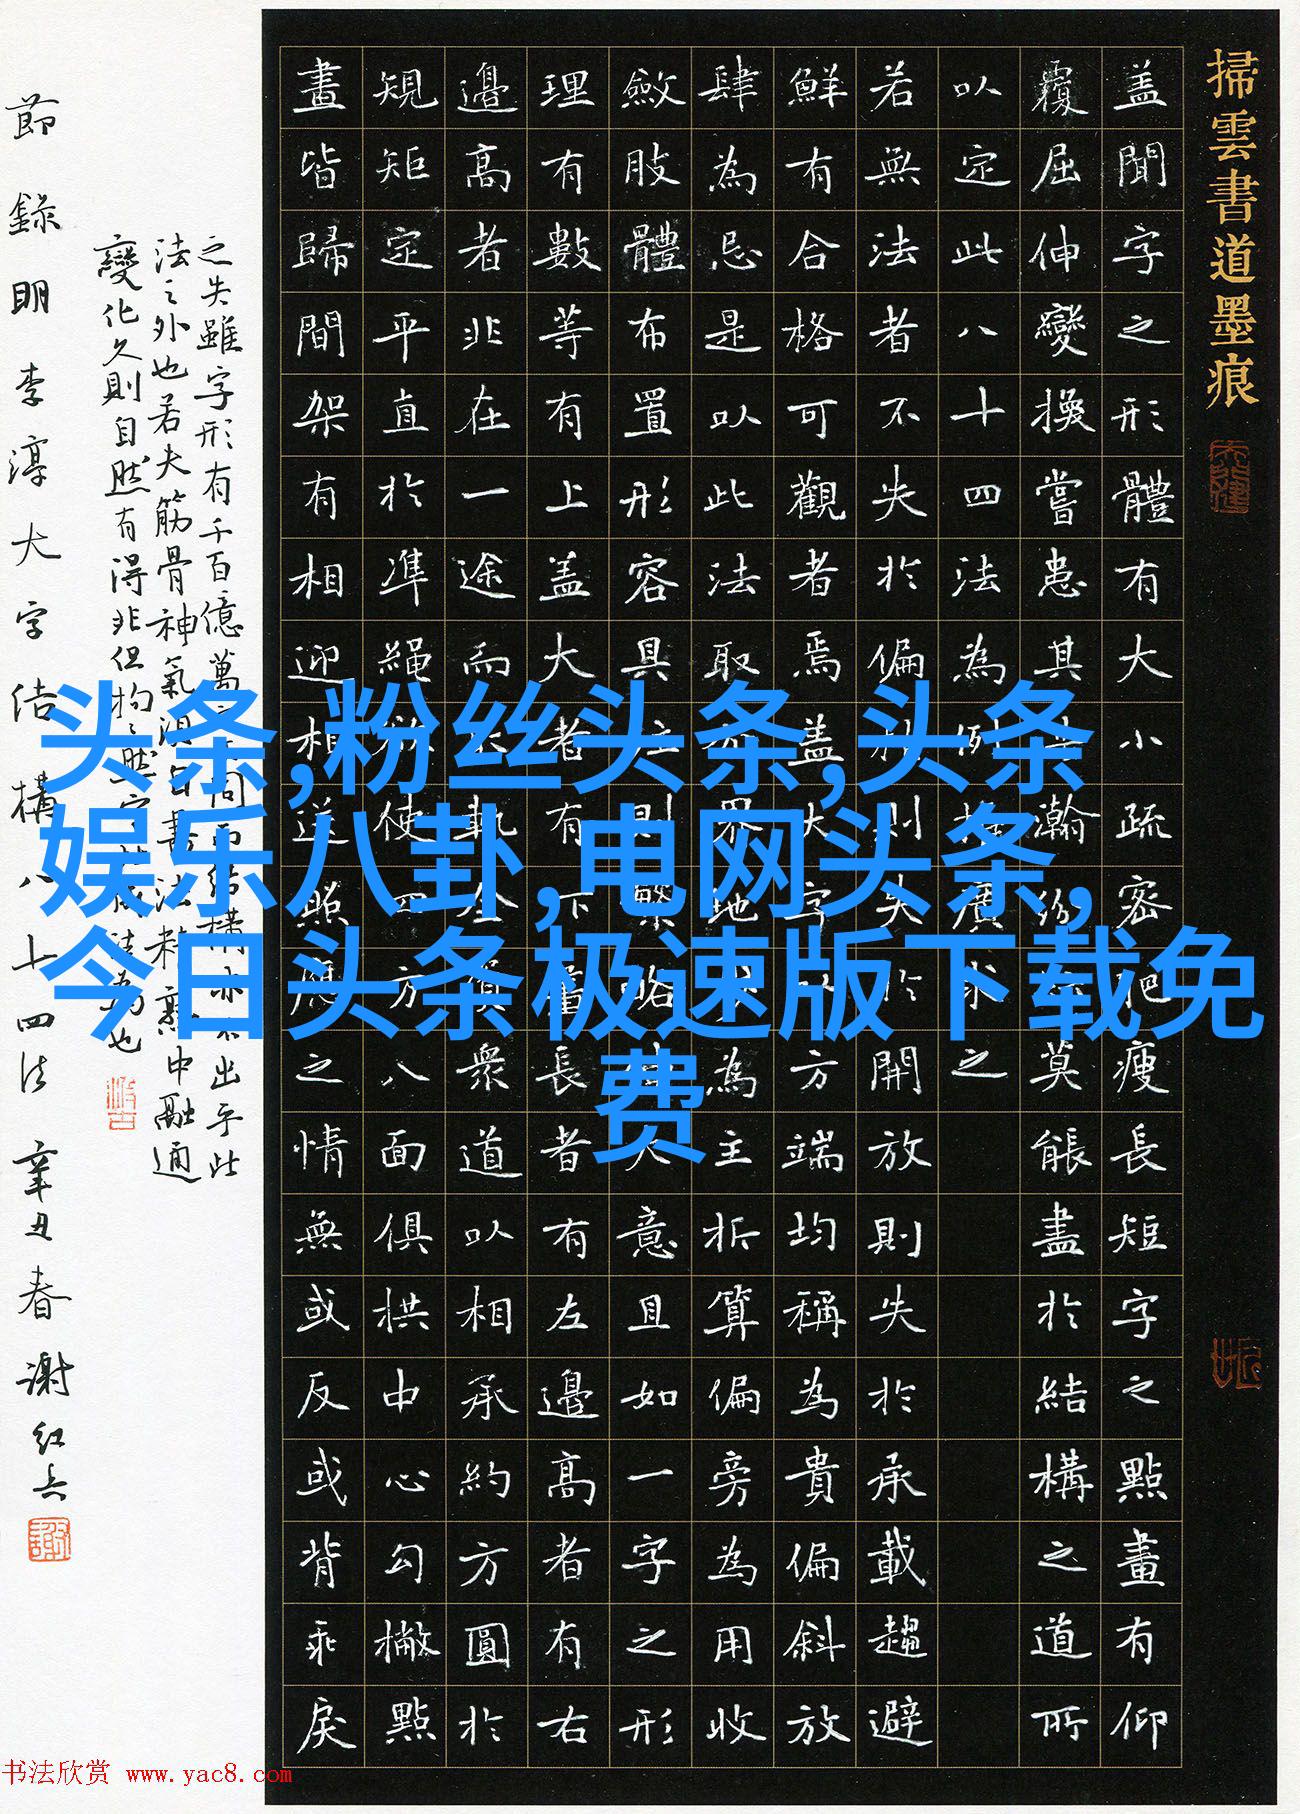 掃雲書道墨痕
盖聞字之形體有大小疏密肥瘦長短字之點畫有仰
覆屈伸變換嘗患其瀚紛莫能盡於結構之道所
以定此八十四法為例推廣求之
若無法者不失於偏則失於開放則失於承載趨避
鮮有合格可觀者焉盖大字方端均稱為貴偏斜放
肆為忌是以此法取界地為主折算偏旁為用收
斂肢體布置形容具在則繁略人意且如一字之形
理有數等有上盖大者有下畫長者有左邊高者有右
邊高者非在一途而執全衆道以相承約方圓於
規矩定平直於準繩使四方八面俱拱中心勾撇點
畫皆歸間架有相迎相道照應之情無或反或背乖戾
之失雖字形有千百億萬之不同而結構亦不出乎此
法之外也若夫筋骨神氣須自書法精熟中融通
變化久則自然有得非但拘之然字法為也
節錄明李淳大字结構八十四法 辛丑春 谢红兵
头条,粉丝头条,头条
娱乐八卦,电网头条,
今日头条极速版下载免
费
书法欣赏 www.yac8.com